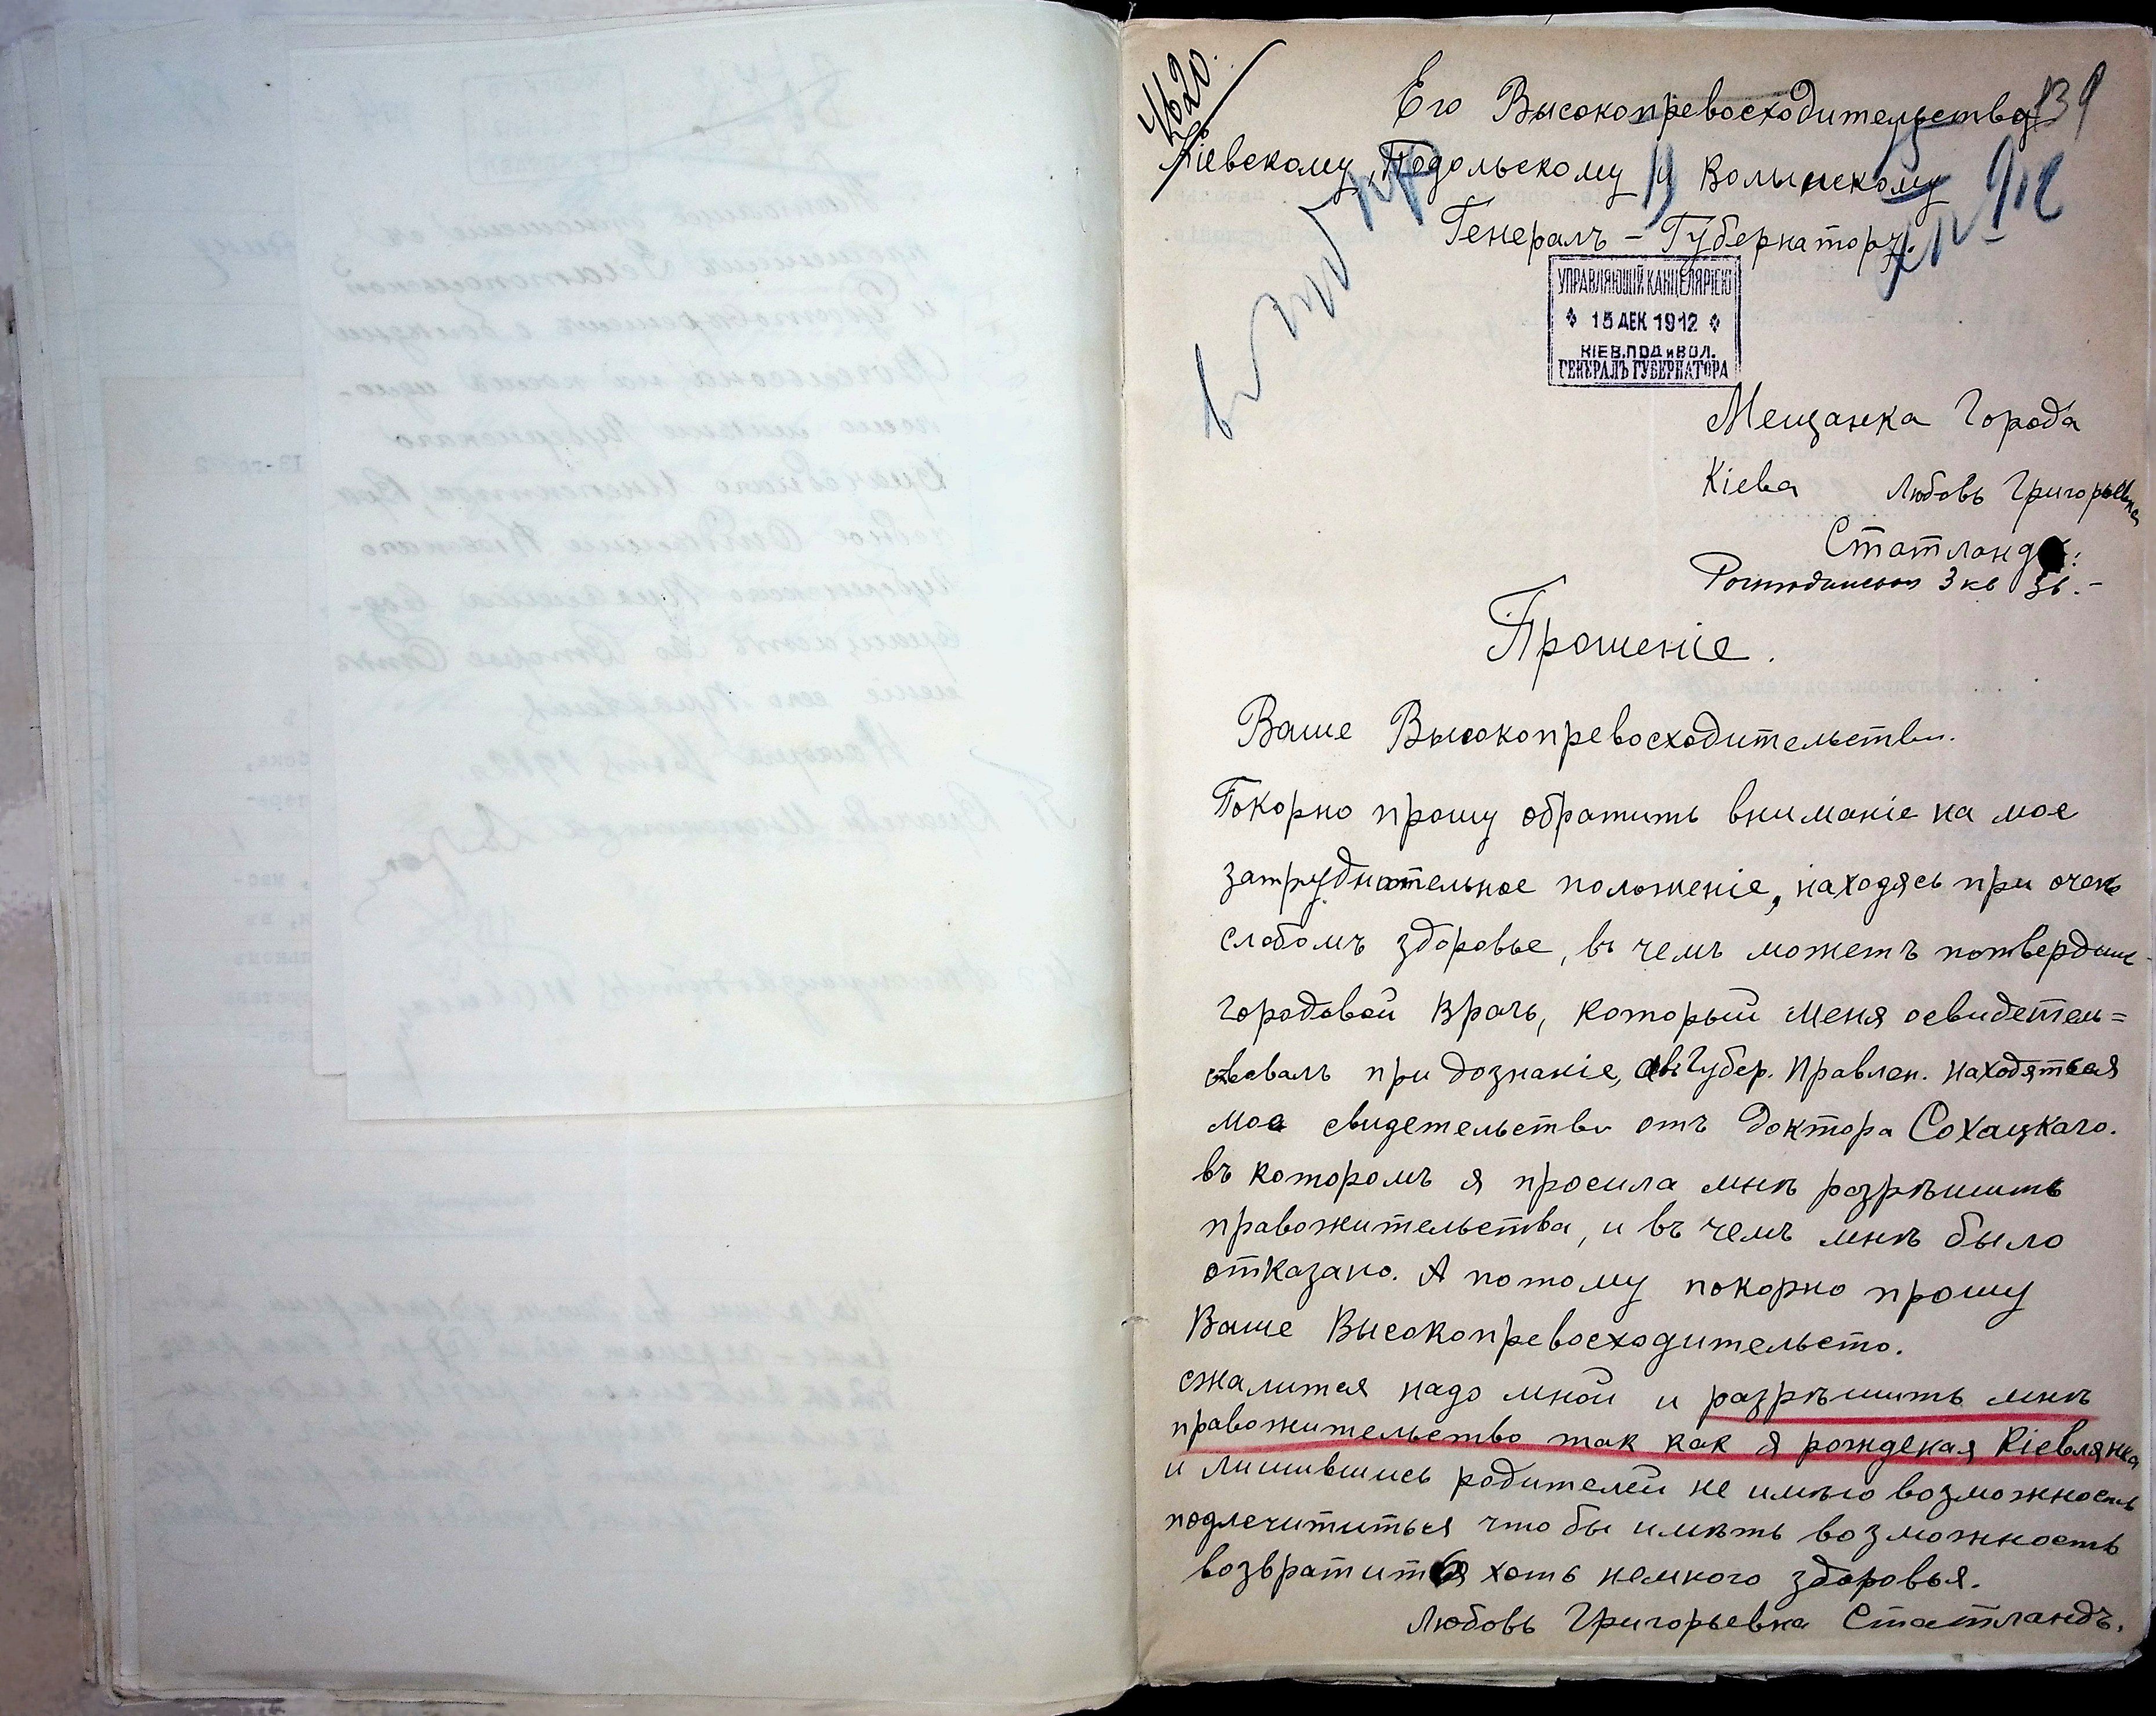 4620.
139
Его Высокопревосходительству
Кіевскому, Подольскому и Волынскому
Генералъ-Губернатору.
УПРАВЛЯЮЩІЙ КАНЦЕЛЯРІЕЮ
15 ДЕК 1912
КІЕВ. ПОД. и ВОЛ.
ГЕНЕРАЛЪ ГУБЕРНАТОРА
Мещанка Города
Кіева Любовь Григорьевна
Статландъ:
3 кв 36.-
Прошеніе.
Ваше Высокопревосходительство.
Покорно прошу обратить вниманіе на мое
затруднительное положеніе, находясь при очень
слабомъ здоровье, въ чемъ можетъ потвердить
городовой врачъ, который меня освидетель=
ствовалъ при дознаніе, Губер. Правлен. находяться
мое свидетельство отъ доктора Сохацкаго.
въ которомъ я просила мнѣ разрѣшить
правожительства, и въ чемъ мнѣ было
отказано. А потому покорно прошу
Ваше Высокопревосходительсто.
сжалится надо мной и разрѣшить мнѣ
правожительство так как я рожденая Кіевлянка
и лишившись родителей не имѣю возможность
подлечититься что бы имѣть возможность
возвратить хоть немного здоровья.
Любовь Григорьевна Статландъ.